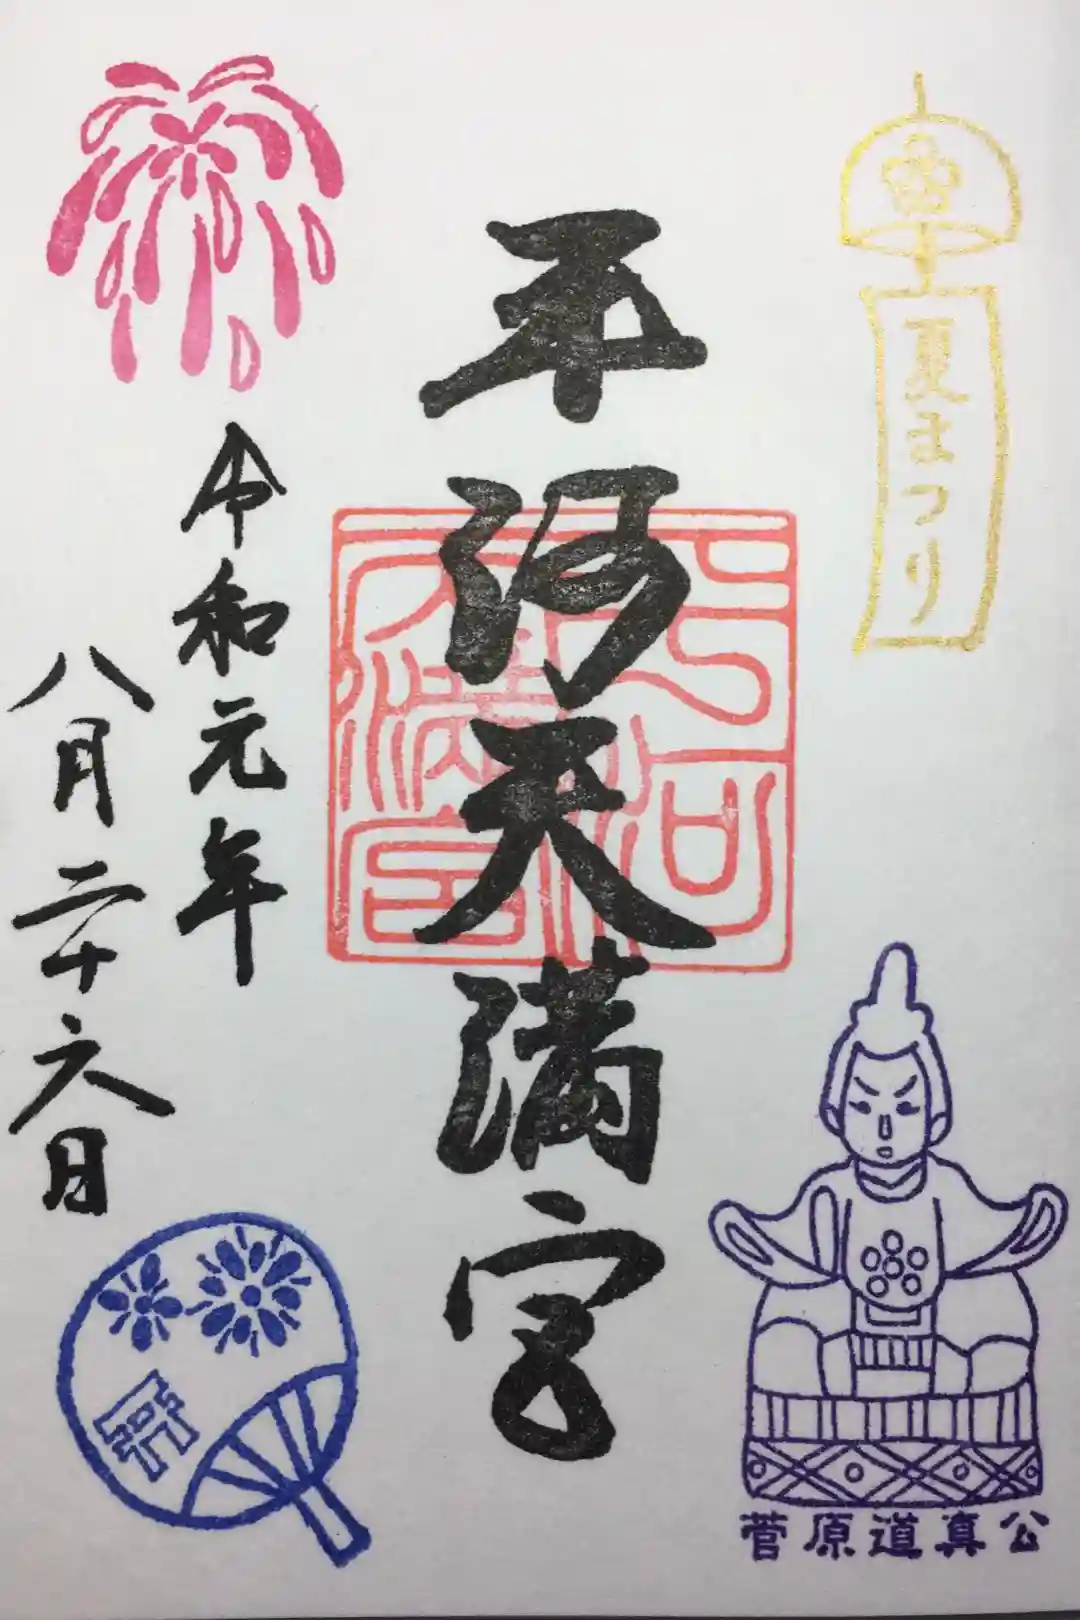 夏まつり
平河天満宮
令和元年
八月二十六日
菅原道真公